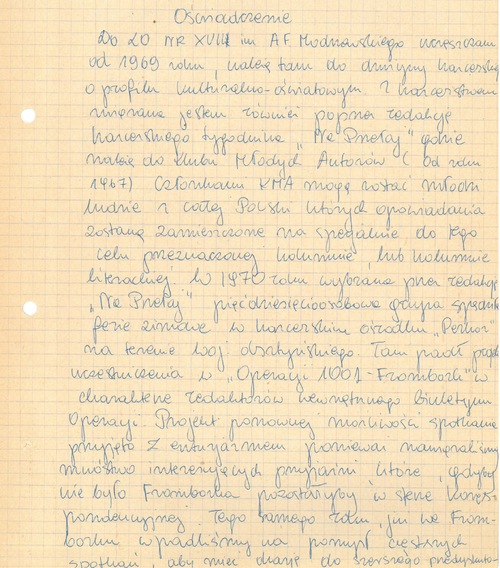 Oświadczenie
Do LO NR XVIII im A F Modrzewskiego uczęszczam
od 1969 roku, należę tam do drużyny harcerskiej
o profilu kulturalno-oświatowym. Z harcerstwem
związana jestem również poprzez redakcję
harcerskiego tygodnika „Na Przełaj" gdzie
należę do klubu Młodych Autorów (od roku
1967) Członkami KMA mogą zostać młodzi
ludzie z całej Polski których opowiadania
zostaną zamieszczone na specjalnie do tego
celu przeznaczonej kolumnie, lub kolumnie
literackiej. W 1970 roku wybrana przez redakcję
„Na Przełaj" pięćdziesięcioosobowa grupa spędziła
ferie zimowe w harcerskim ośrodku „Perkoz"
na terenie woj olsztyńskiego. Tam padł projekt
uczestniczenia w „Operacji 1001-Frombork" w
charakterze redaktorów wewnętrznego biuletynu
Operacji. Projekt ponownej możliwości spotkania
przyjęto z entuzjazmem ponieważ nawiązaliśmy
mnóstwo interesujących przyjaźni które, gdyby
nie było Fromborka pozostałyby w sferze kores-
pondencyjnej. Tego samego roku, już we From-
borku wpadliśmy na pomysł częstszych
spotkań, aby mieć okazję do szerszego